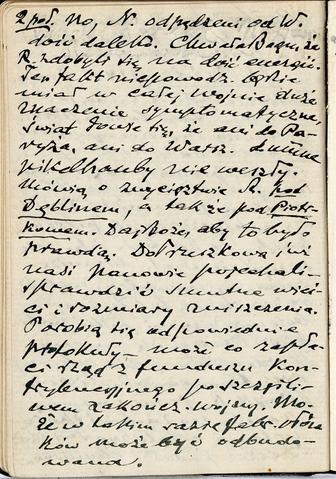 2 poł. No, N. odpędzeni od W.
dość daleko. Chwała Bogu, że
R. zdobyli się na dość energii.
Ten fakt niepowodz. będzie
miał w całej wojnie duże
znaczenie symptomatyczne,
świat dowie się, że ani do Pa-
ryża, ani do Warsz. dumne
pikelhauby nie weszły.
Mówią o zwycięstwie R. pod
Dęblinem, a także pod Piotr-
kowem. Daj Boże, aby to było
prawdą. Do Pruszkowa już
nasi panowie pojechali -
sprawdzić smutne wieś-
ci i rozmiary zniszczenia.
Porobią się odpowiednie
protokuły - może co zapła-
ci rząd z funduszu Kon-
trybucyjnego po szczęśli-
wem zakończ. wojny. Mo-
że w takim razie fabr. ołów-
ków może być odbudo-
wana.